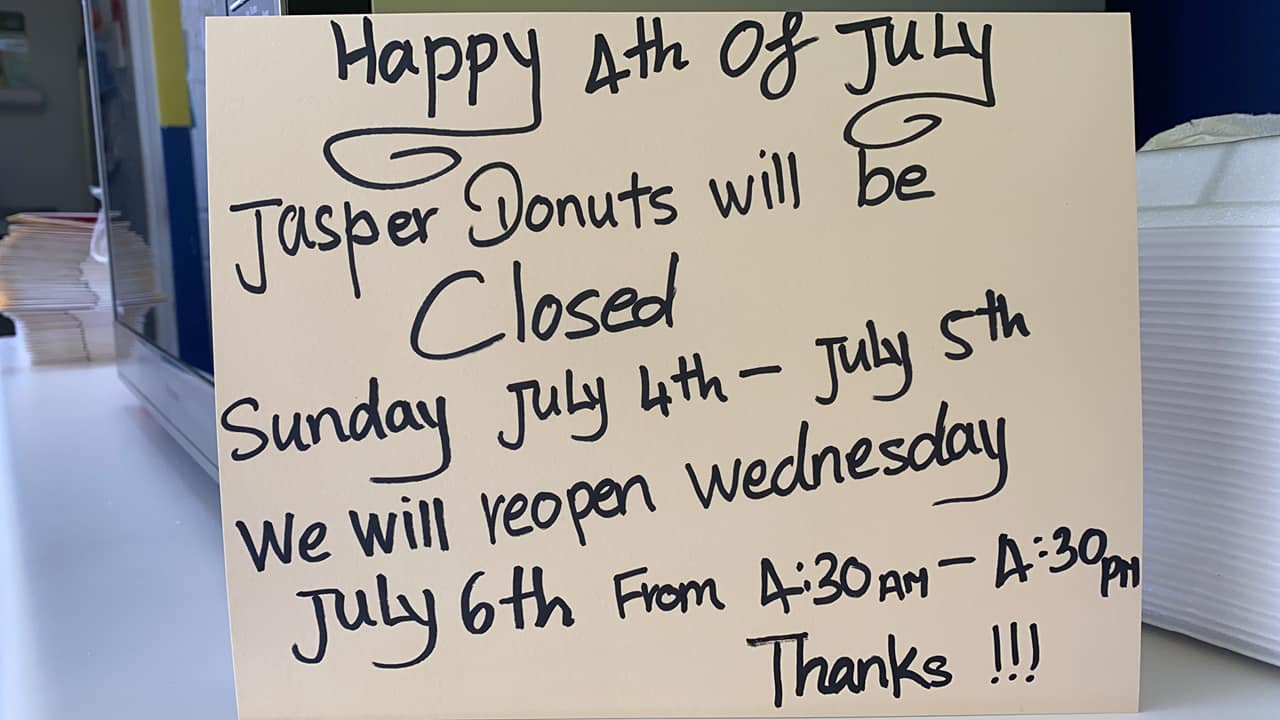 Happy 4th Of July
Jasper Donuts will be
Closed
Sunday July 4th - July 5th
We will reopen Wednesday
July 6th From 4:30 AM - 4:30 PM
Thanks !!!